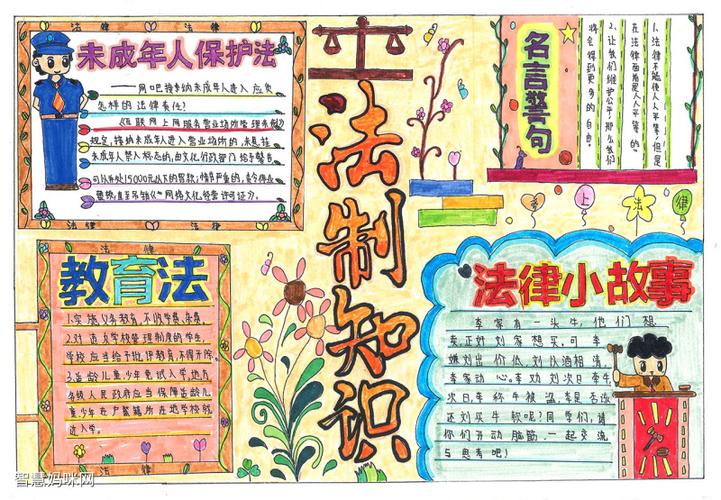 法律
法律
未成年人保护法
——网吧接纳未成年人进入应负
怎样的法律责任?
《互联网上网服务营业场所管理条例》
规定,接纳未成年人进入营业场所的,未悬挂
未成年人禁入标志的,由文化行政部门给予警告
可以并处15000元以下的罚款;情节严重的,责令停业
整顿,直至吊销《网络文化经营许可证》。
法律
法律
法制知识
名言警句
1.法律不能使人人平等,但是
在法律面前是人人平等的。
2.让我们维护公平,那么我们
将会得到更多的自由。
爱上法律
法律
教育法
1.实施义务教育,不收学费、杂费。
2.对违反学校管理制度的学生,
学校应当给予批评教育,不得开除。
3.适龄儿童少年免试入学,地方
各级人民政府应当保障适龄儿
童少年在户籍所在地学校就
近入学。
法律
法律小故事
李家有一头牛,他们想
卖,正好刘家想买。可李
嫌刘出价低,刘以酒相请,
李家动心。李劝刘次日牵牛,
次日,李称牛被盗,李是否该
还刘买牛款呢?同学们,请
你们开动脑筋,一起交流
与思考吧!
智慧妈咪网